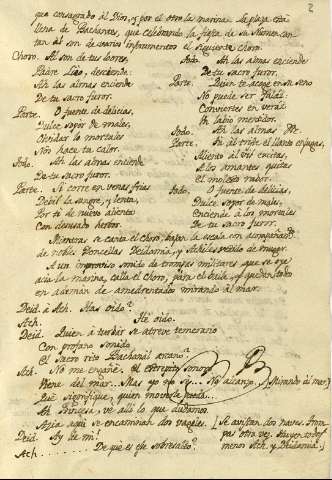 2
que consagrado al Dios, y por el otro la marina. La plaza esta
llena de Bachantes, que celebrando la fiesta de su Numen can-
tan al son de varios instrumentos el siguiente choro.
Choro. Al son de tus loores,
Padre Lieo, desciende:
Ah las almas enciende
De tu sacro furor.
Parte. O fuente de delicias,
Dulce sopor de males,
Olvidar los mortales
Nos hace tu calor.
todo. Ah las almas enciende
De tu sacro furor.
Parte. Si corre en venas frias
Debil la sangre, y lenta,
Por ti de nuevo alienta
Con desusado herbor.
todo. Ah las almas enciende
De tu sacro furor.
Parte. Quien te acoge en su seno
No puede ser falaz:
Conviertes en veraz
Un labio mentidor.
todo. Ah las almas &c.
Parte. Tu al triste el llanto enjugas,
Aliento al vil excitas,
A los amantes quitas
El molesto rubor.
todo. O fuente de delicias,
Dulce sopor de males,
Enciende a los mortales
De tu sacro furor.
Mientras se canta el choro, bajan la escala con acompañam.to
de nobles Doncellas Deidamia, y Achiles vestido de muger.
A un improviso sonido de trompas militares que se oye
acia la marina, calla el choro, para el baile, y quedan todos
en ademan de amedrentados mirando al mar.
Deid. à Ach. Has oido?
Ach. He oido.
Deid. Quien à turbar se atreve temerario
Con profano sonido
El sacro rito Bachanal arcano?
Ach. No me engañè, el estrepito sonoro
Viene del mar... Mas yo no sy... No alcanzo (Mirando al mar)
Què signifique, quien moverle pueda...
Ah Princesa, ve alli lo que dudamos.
Azia aqui se encaminan dos vageles. [Se avistan dos naves. Trom-
Deid. Ay de mi! pas otra vez. Huyen todos
Ach. De què es este sobresalto? menos Ach. y Deidamia.]